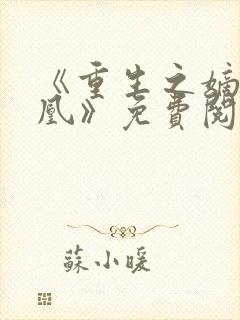 《重生之嫡
凰》免費閱
蘇小暖